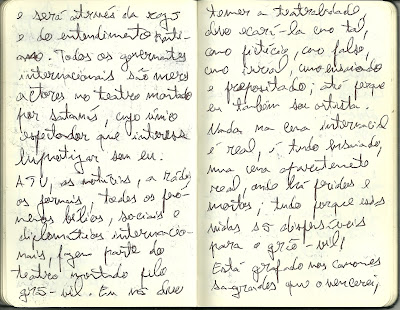 e será através da
e do entendimento
Todos os governantes
internacionais são meros
actores no teatro montado
por satanás, cujo único
espectador que interessa
hipnotizar sou eu.
A TV, as notícias, a rádio,
os jornais, todos os fenó-
menos bélicos, sociais e
diplomáticos internacio-
nais, fazem parte do
teatro montado pelo
grã-vil. Eu não devo
temer a teatralidade,
devo encará-la como tal,
como fictício, como falso,
como irreal, como ensaiado
e propositado; até porque
eu também sou artista.
Nada na cena internacional
é real, é tudo ensaiado,
uma cena aparentemente
real, onde há feridos e
mortos; tudo porque essas
vidas são dispensáveis
para o grão-vil,
Está grafado nos canones
sagrados que o vencerei,